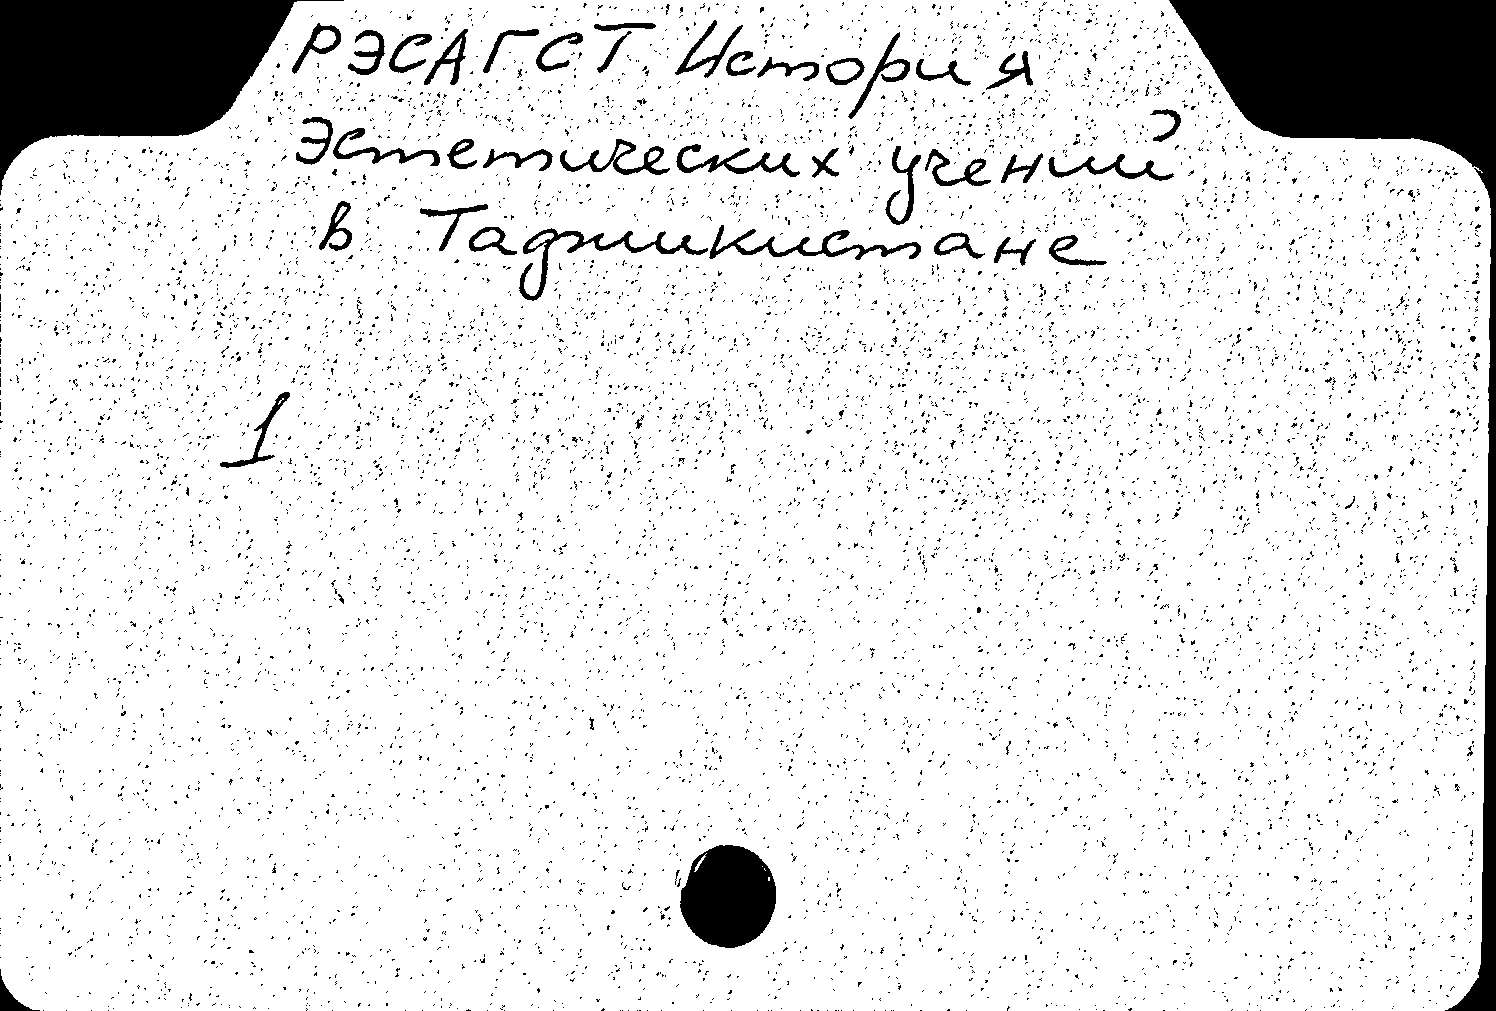 РЭСАГСТ История
эстетических учений
в Таджикистане
1